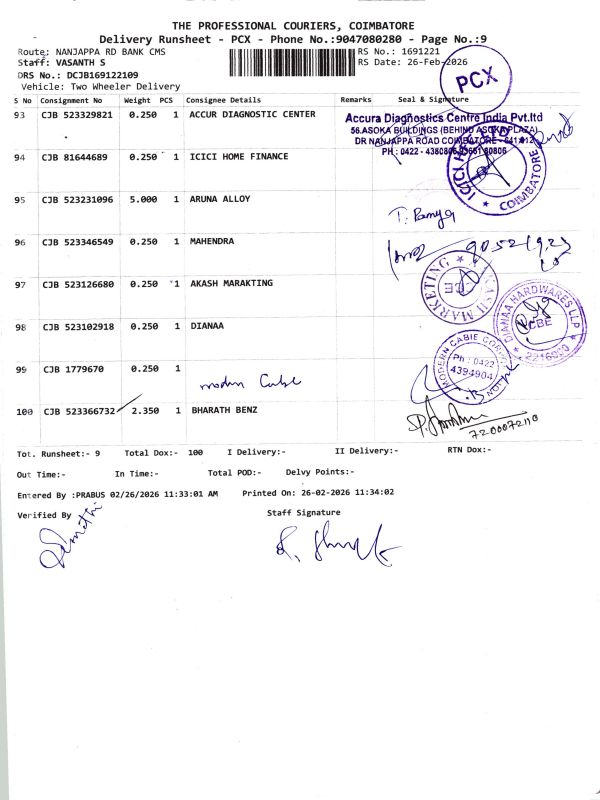 THE PROFESSIONAL COURIERS, COIMBATORE
Delivery Runsheet - PCX - Phone No.:9047080280 - Page No.:9
Route: NANJAPPA RD BANK CMS
RS No.: 1691221
Staff: VASANTH S
RS Date: 26-Feb-2026
DRS No.: DCJB169122109
Vehicle: Two Wheeler Delivery
PCX
S No Consignment No Weight PCS Consignee Details Remarks Seal & Signature
93 CJB 523329821 0.250 1 ACCUR DIAGNOSTIC CENTER
Accura Diagnostics Centre India Pvt.ltd
56.ASOKA BUILDINGS (BEHIND ASOKA PLAZA)
DR NANJAPPA ROAD COIMBATORE - 641012
PH : 0422 - 4380806
94 CJB 81644689 0.250 1 ICICI HOME FINANCE
ICICI COIMBATORE
95 CJB 523231096 5.000 1 ARUNA ALLOY
T. Ramya
96 CJB 523346549 0.250 1 MAHENDRA
97 CJB 523126680 0.250 1 AKASH MARAKTING
AKASH MARKETING
CBE
98 CJB 523102918 0.250 1 DIANAA
DIANAA HARDWARES LLP
CBE
2216990
99 CJB 1779670 0.250 1
modern Cable
MODERN CABLE
Ph : 0422
4394904
100 CJB 523366732 2.350 1 BHARATH BENZ
Tot. Runsheet:- 9 Total Dox:- 100 I Delivery:- II Delivery:- RTN Dox:-
Out Time:- In Time:- Total POD:- Delvy Points:-
Entered By :PRABUS 02/26/2026 11:33:01 AM Printed On: 26-02-2026 11:34:02
Verified By Staff Signature